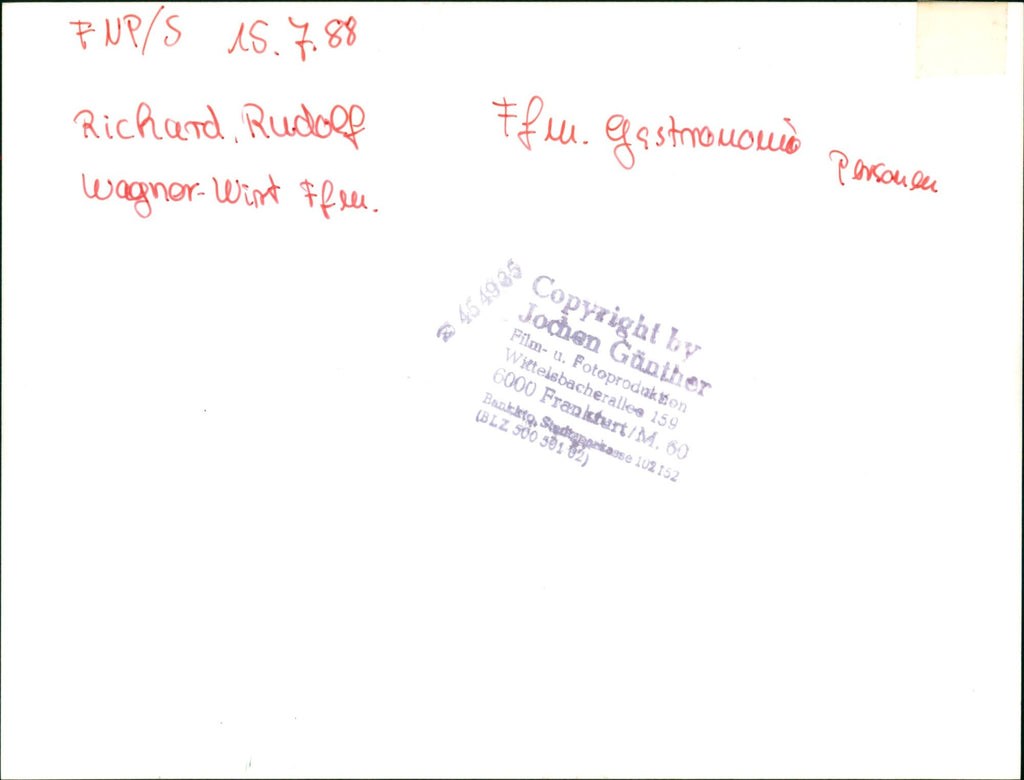 FNP/S 15.7.88
Richard, Rudolf
Wagner-Wirt Ffm.
Ffm. Gastronomie
Personen
☎ 454935
Copyright by
Jochen Günther
Film- u. Fotoproduktion
Wittelsbacherallee 159
6000 Frankfurt/M. 60
Bankkto. Stadtsparkasse 102152
(BLZ 500 501 02)